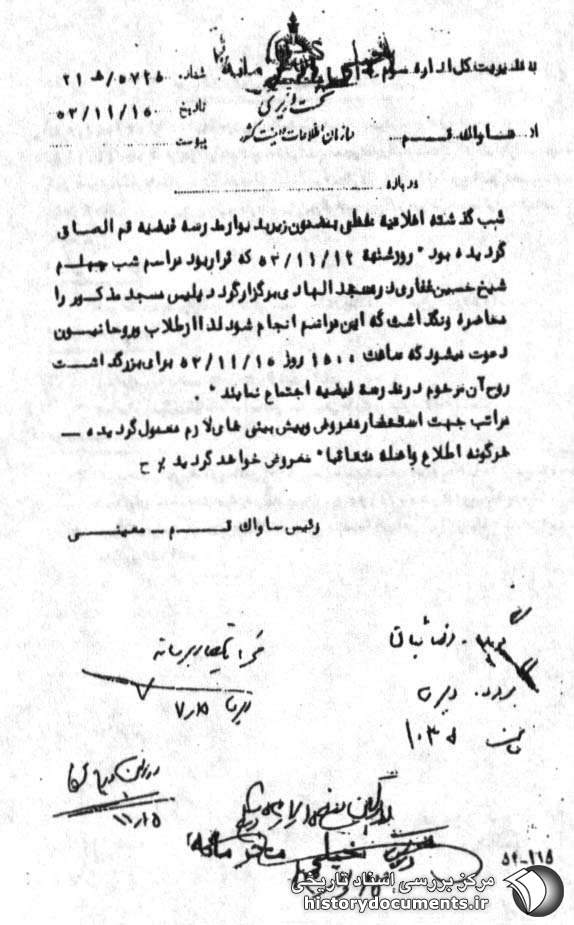 به مدیریت کل اداره سوم
شماره ۲۱/۵۷۲۵ ﻫ
نخست وزیری
تاریخ ۵۳/۱۱/۱۵
سازمان اطلاعات و امنیت کشور
از ساواک قم
پیوست
درباره
شب گذشته اعلامیه خطی بمضمون زیر بدیوار مدرسه فیضیه قم الصاق
گردیده بود " روز شنبه ۵۳/۱۱/۱۲ که قرار بود مراسم شب چهلم
شیخ حسین غفاری در مسجد الهادی برگزار گردد پلیس مسجد مذکور را
محاصره و نگذاشت که این مراسم انجام شود لذا از طلاب و روحانیون
دعوت میشود که ساعت ۱۵۰۰ روز ۵۳/۱۱/۱۵ برای بزرگداشت
روح آن مرحوم در مدرسه فیضیه اجتماع نمایند " .
مراتب جهت استحضار معروض و پیش بینی های لازم معمول گردیده
هرگونه اطلاع واصله متعاقبا" معروض خواهد گردید ٪ ح
رئیس ساواک قم - معینی
۱۰۳۵
۷٫۱۵
۱۱٫۱۵
خیلی
۵۴-۱۱۵
مرکز بررسی اسناد تاریخی
historydocuments.ir